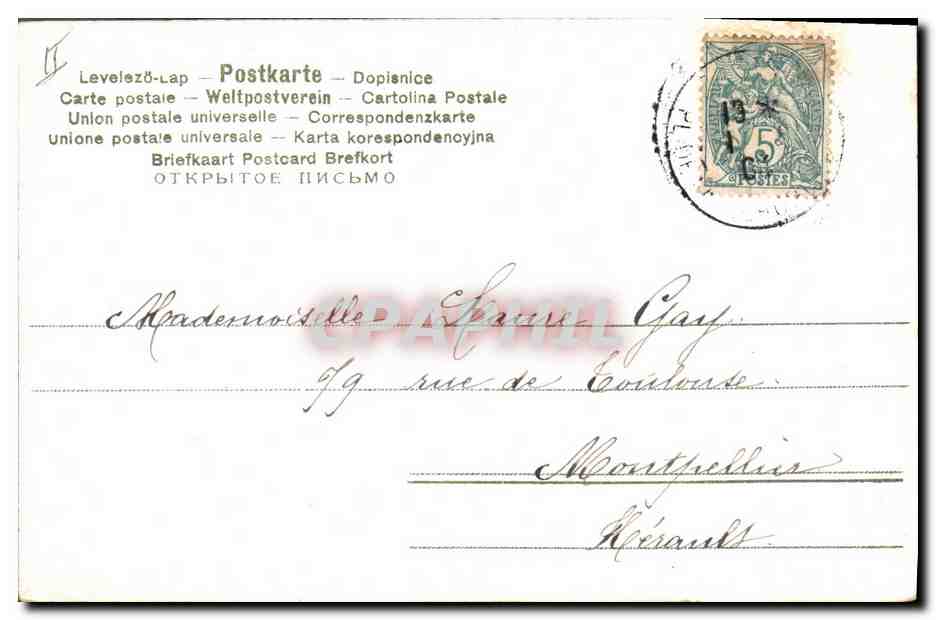 Levelező-Lap — Postkarte — Dopisnice
Carte postale — Weltpostverein — Cartolina Postale
Union postale universelle — Correspondenzkarte
Unione postale universale — Karta korespondencyjna
Briefkaart Postcard Brefkort
ОТКРЫТОЕ ПИСЬМО
13
1
5
POSTES
Mademoiselle Laure Gay
CPAPHIL
rue de Toulouse
Montpellier
Hérault